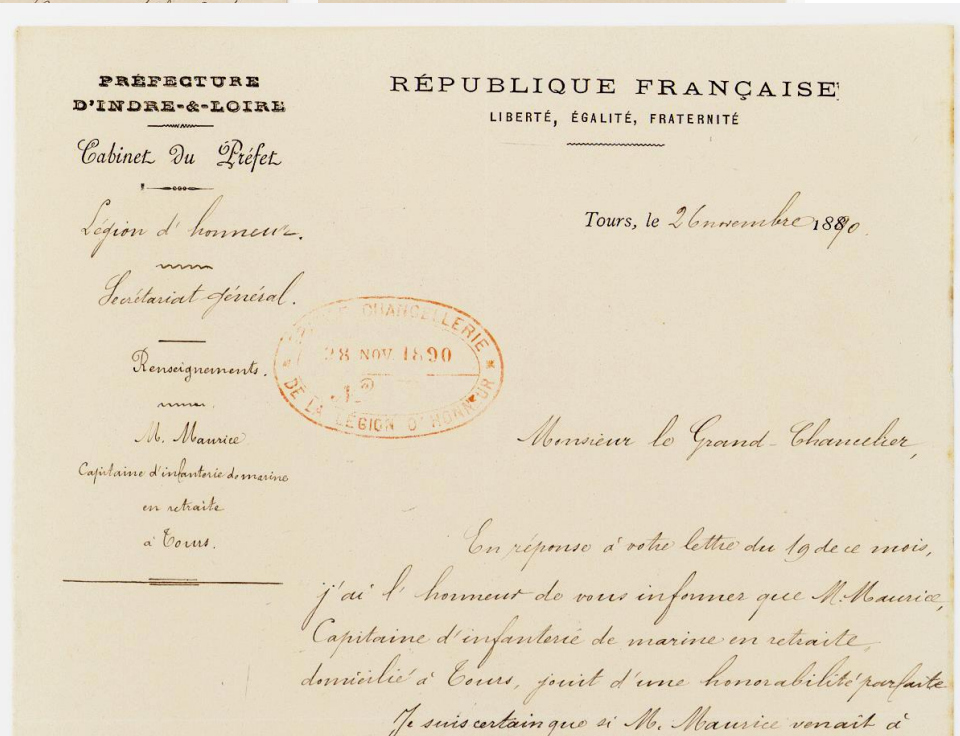 PRÉFECTURE
D'INDRE-&-LOIRE
Cabinet du Préfet
Légion d'honneur.
Secrétariat général.
Renseignements.
M. Maurice
Capitaine d'infanterie de marine
en retraite
à Tours.
RÉPUBLIQUE FRANÇAISE
LIBERTÉ, ÉGALITÉ, FRATERNITÉ
Tours, le 26 novembre 1890.
CHANCELLERIE
28 NOV. 1890
DE LA LÉGION D'HONNEUR
Monsieur le Grand-Chancelier,
En réponse à votre lettre du 19 de ce mois,
j'ai l'honneur de vous informer que M. Maurice,
Capitaine d'infanterie de marine en retraite,
domicilié à Tours, jouit d'une honorabilité parfaite
Je suis certain que si M. Maurice venait à